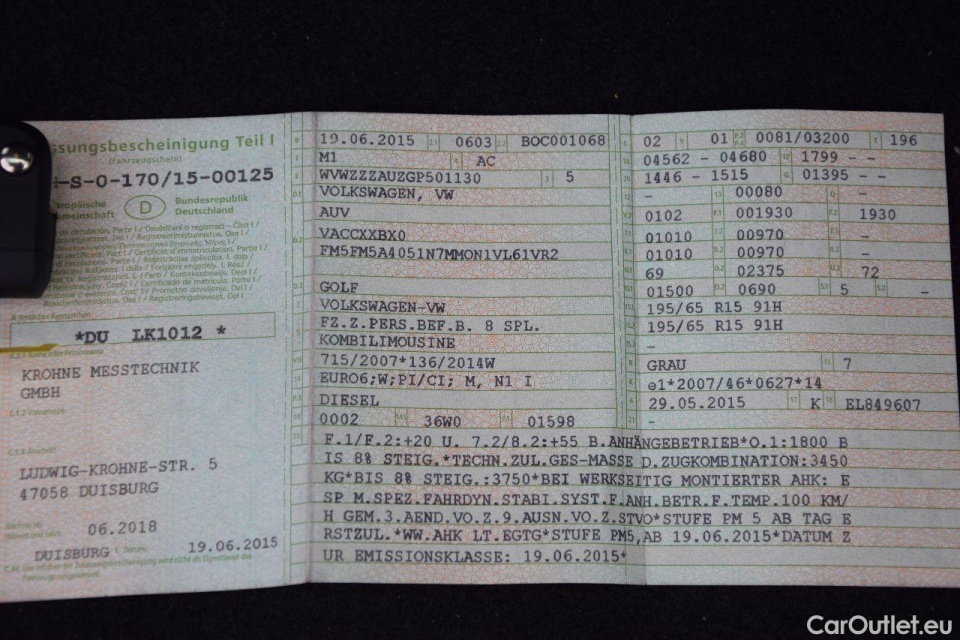 ssungsbescheinigung Teil I
(Fahrzeugschein)
-S-O-170/15-00125
Europäische Gemeinschaft
D
Bundesrepublik Deutschland
*DU LK1012 *
KROHNE MESSTECHNIK
GMBH
LUDWIG-KROHNE-STR. 5
47058 DUISBURG
06.2018
DUISBURG
19.06.2015
19.06.2015 0603 BOC001068
M1 AC
WVWZZZAUZGP501130 5
VOLKSWAGEN, VW
AUV
VACCXXBX0
FM5FM5A4051N7MMON1VL61VR2
GOLF
VOLKSWAGEN-VW
FZ.Z.PERS.BEF.B. 8 SPL.
KOMBILIMOUSINE
715/2007*136/2014W
EURO6;W;PI/CI; M, N1 I
DIESEL
0002 36W0 01598
02 01 0081/03200 196
04562 - 04680 1799 - -
1446 - 1515 01395 - -
- 00080 -
0102 001930 1930
01010 00970 -
01010 00970 -
69 02375 72
01500 0690 5 -
195/65 R15 91H
195/65 R15 91H
-
GRAU 7
e1*2007/46*0627*14
29.05.2015 K EL849607
-
F.1/F.2:+20 U. 7.2/8.2:+55 B.ANHÄNGEBETRIEB*O.1:1800 B
IS 8% STEIG.*TECHN.ZUL.GES-MASSE D.ZUGKOMBINATION:3450
KG*BIS 8% STEIG.:3750*BEI WERKSEITIG MONTIERTER AHK: E
SP M.SPEZ.FAHRDYN.STABI.SYST.F.ANH.BETR.F.TEMP.100 KM/
H GEM.3.AEND.VO.Z.9.AUSN.VO.Z.STVO*STUFE PM 5 AB TAG E
RSTZUL.*WW.AHK LT.EGTG*STUFE PM5,AB 19.06.2015*DATUM Z
UR EMISSIONSKLASSE: 19.06.2015*
CarOutlet.eu